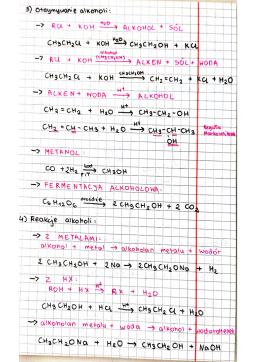 3) Otrzymywanie alkoholi:
→ RCl + KOH —H₂O→ ALKOHOL + SÓL
CH₃CH₂Cl + KOH —H₂O→ CH₃CH₂OH + KCl
→ RCl + KOH —alkohol (CH₃CH₂OH)→ ALKEN + SÓL + WODA
CH₃CH₂Cl + KOH —CH₃CH₂OH→ CH₂=CH₂ + KCl + H₂O
→ ALKEN + WODA —H⁺→ ALKOHOL
CH₂=CH₂ + H₂O —H⁺→ CH₃-CH₂-OH
CH₂=CH-CH₃ + H₂O —H⁺→ CH₃-CH-CH₃
OH
reguła Markownikowa
→ METANOL:
CO + 2H₂ —kat p,T→ CH₃OH
→ FERMENTACJA ALKOHOLOWA:
C₆H₁₂O₆ —drożdże→ 2CH₃CH₂OH + 2CO₂
4) Reakcje alkoholi:
→ Z METALAMI:
alkohol + metal → alkoholan metalu + wodór
2CH₃CH₂OH + 2Na → 2CH₃CH₂ONa + H₂
→ Z HX:
ROH + HX —H⁺→ RX + H₂O
CH₃CH₂OH + HCl —H⁺→ CH₃CH₂Cl + H₂O
→ alkoholan metalu + woda → alkohol + wodorotlenek
CH₃CH₂ONa + H₂O → CH₃CH₂OH + NaOH